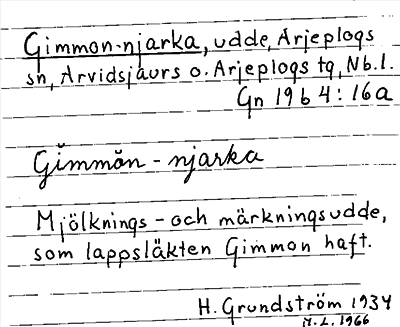 Gimmon-njarka, udde, Arjeplogs
sn, Arvidsjaurs o. Arjeplogs tg, Nb.l.
Gn 19 b 4:16a
Gĭmmŏn - njarka
Mjölknings- och märkningsudde,
som lappsläkten Gimmon haft.
H. Grundström 1934
1966